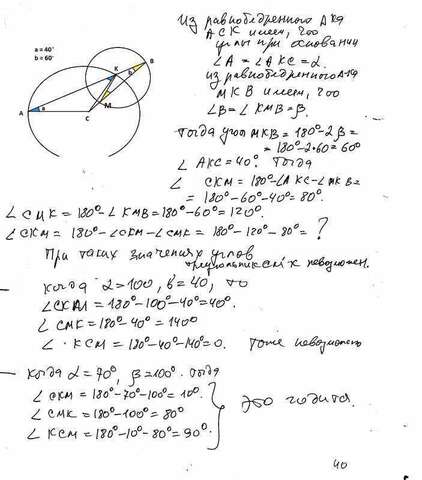 a = 40°
b = 60°
A
a
C
K
M
b
B
Из равнобедренного Δ-ка
АСК имеем, что
углы при основании
∠A = ∠AKC = α.
из равнобедренного Δ-ка
МКВ имеем, что
∠B = ∠KMB = β.
Тогда угол MKB = 180° - 2β =
= 180° - 2·60 = 60°
∠AKC = 40°. Тогда
∠CKM = 180° - ∠AKC - ∠MKB =
= 180° - 60° - 40° = 80°.
∠CMK = 180° - ∠KMB = 180° - 60° = 120°.
∠CKM = 180° - ∠CKM - ∠CMK = 180° - 120° - 80° = ?
При таких значениях углов
треугольник CMK невозможен.
— Когда α = 100, β = 40, то
∠CKM = 180° - 100° - 40° = 40°.
∠CMK = 180° - 40° = 140°
∠KCM = 180° - 40° - 140° = 0. Тоже невозможно
— Когда α = 70°, β = 100°. Тогда
∠CKM = 180° - 70° - 100° = 10°.
∠CMK = 180° - 100° = 80°
∠KCM = 180° - 10° - 80° = 90°.
Это годится.
40